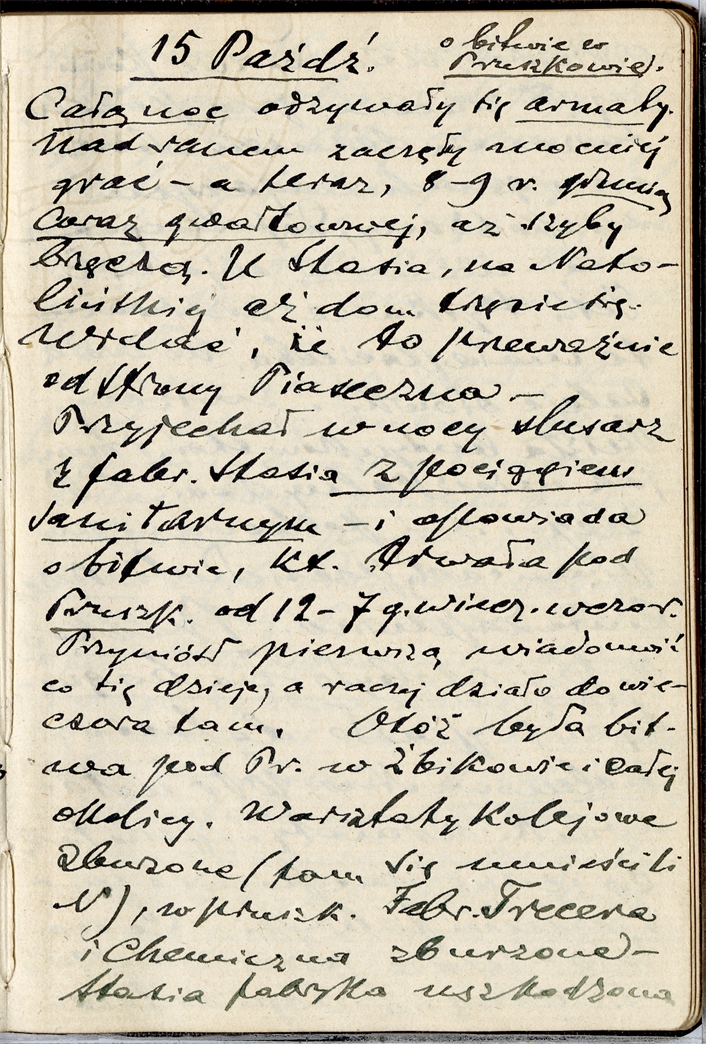 15 Paźdź.
o bitwie w
Pruszkowie.
Całą noc odzywały się armaty.
Nad ranem zaczęły mocniej
grać – a teraz, 8–9 r. grzmią
coraz gwałtowniej, aż szyby
brzęczą. U Stasia, na Nato-
lińskiej aż dom trzęsie się.
Widać, że to przeważnie
od strony Piaseczna –
Przyjechał w nocy ślusarz
z fabr. Stasia z pociągiem
sanitarnym – i opowiada
o bitwie, kt. trwała pod
Pruszk. od 12 – 7 g. wiecz. wczor.
Przyniósł pierwszą wiadomość
co się dzieje, a raczej działo do wie-
czora tam. Otóż była bit-
wa pod Pr. w Żbikowie i całej
okolicy. Warsztaty Kolejowe
zburzone (tam się umieścili
N), w Prusk. Fabr. Trecera
i Chemiczna zburzone –
Stasia fabryka uszkodzona